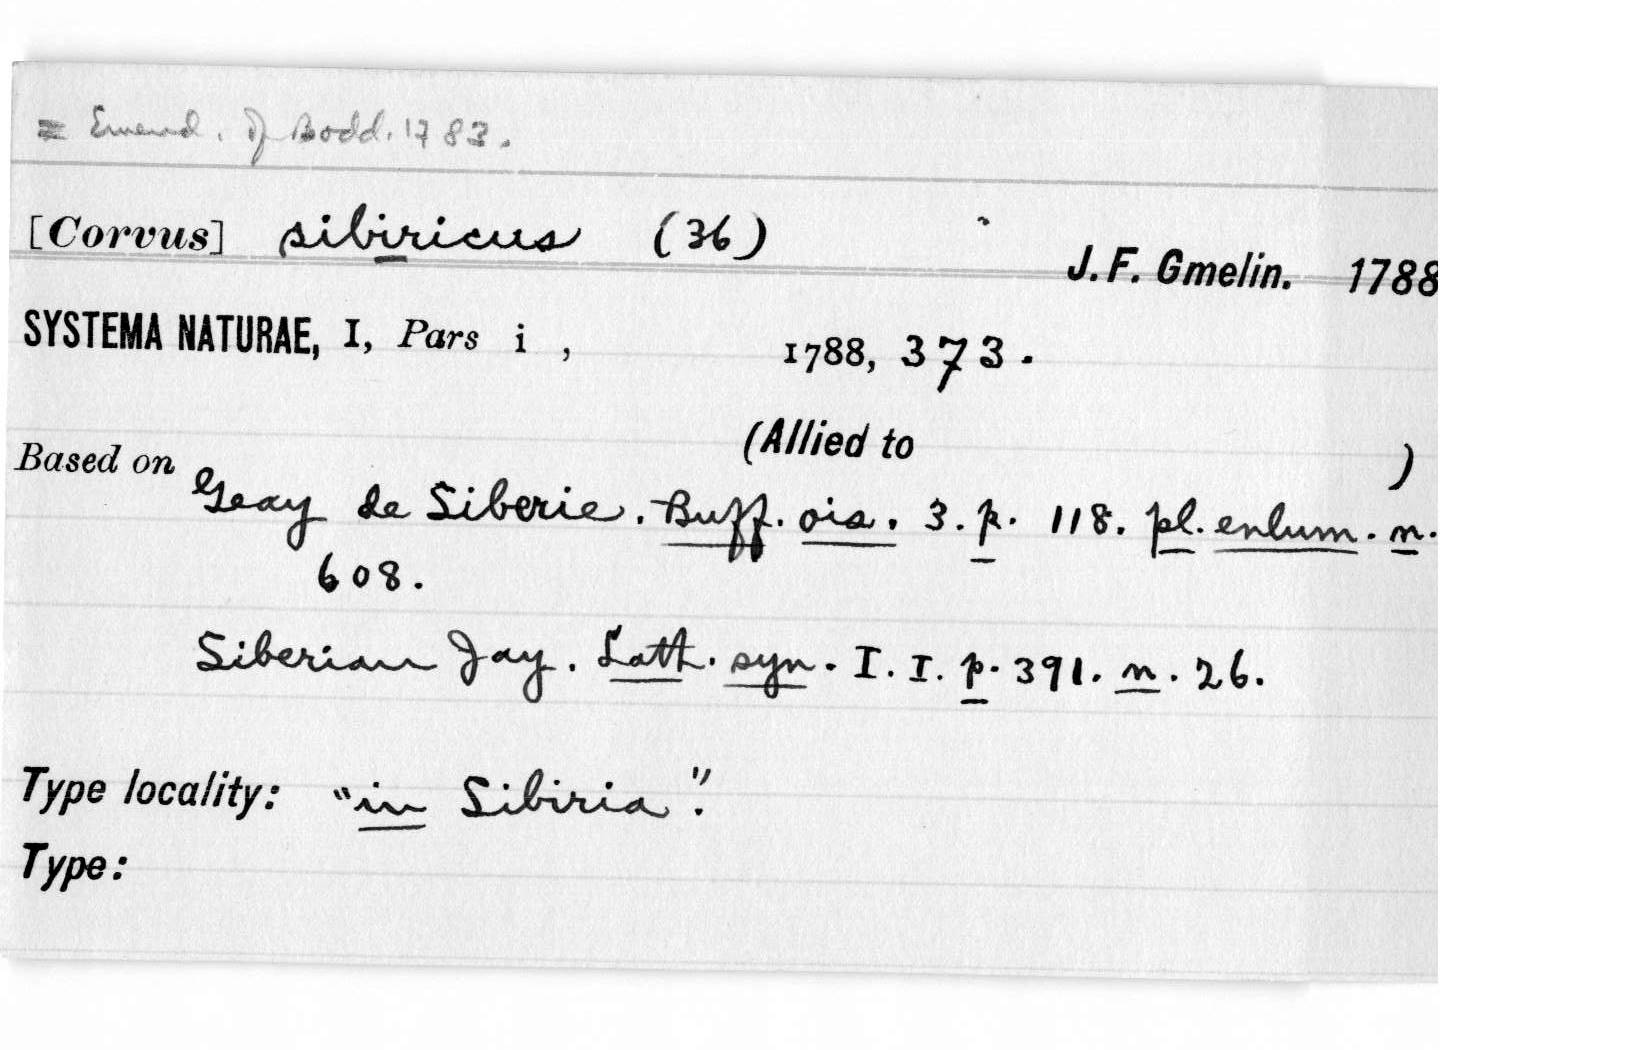 = Emend. of Bodd. 1783.
[Corvus] sibiricus (36)
J. F. Gmelin. 1788
SYSTEMA NATURAE, I, Pars i , 1788, 373.
(Allied to )
Based on
Geay de Siberie. Buff. ois. 3. p. 118. pl. enlum. n.
608.
Siberian Jay. Lath. syn. I. I. p. 391. n. 26.
Type locality: "in Sibiria".
Type: